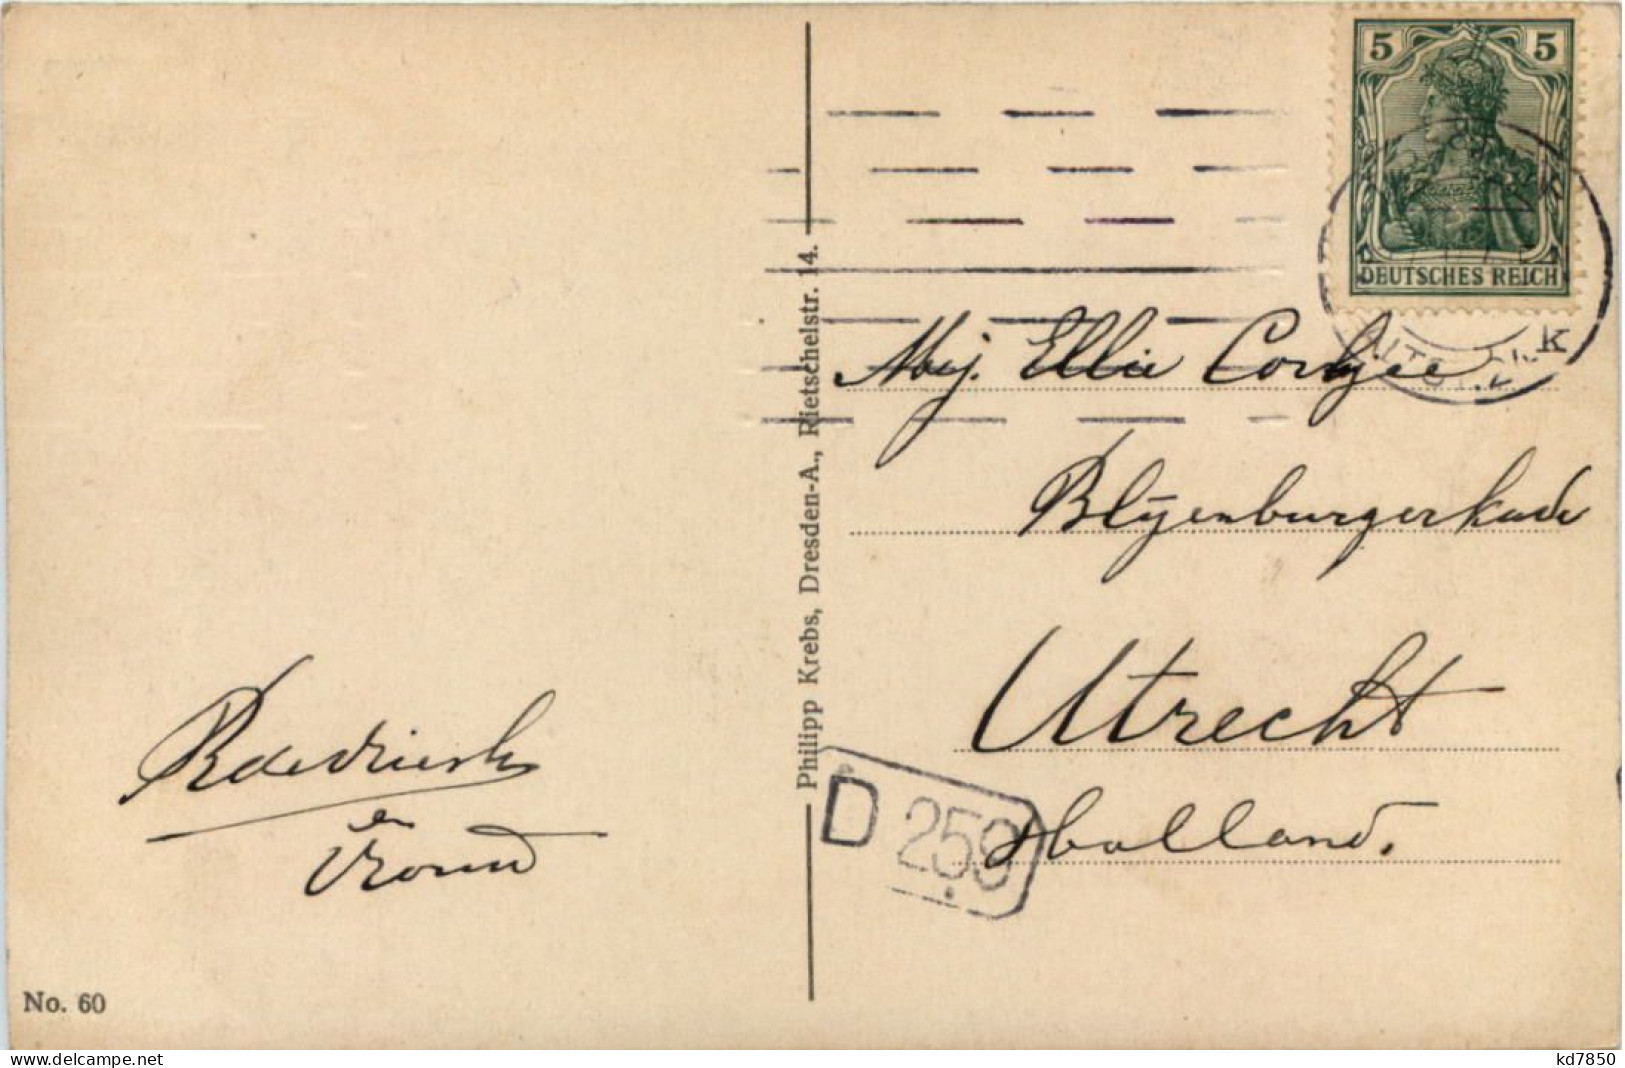 5 5
DEUTSCHES REICH
K
Mej. Ellie
Blÿenburgerkade
Utrecht
Holland.
D 259
en
Philipp Krebs, Dresden-A., Rietschelstr. 14.
No. 60
www.delcampe.net
kd7850